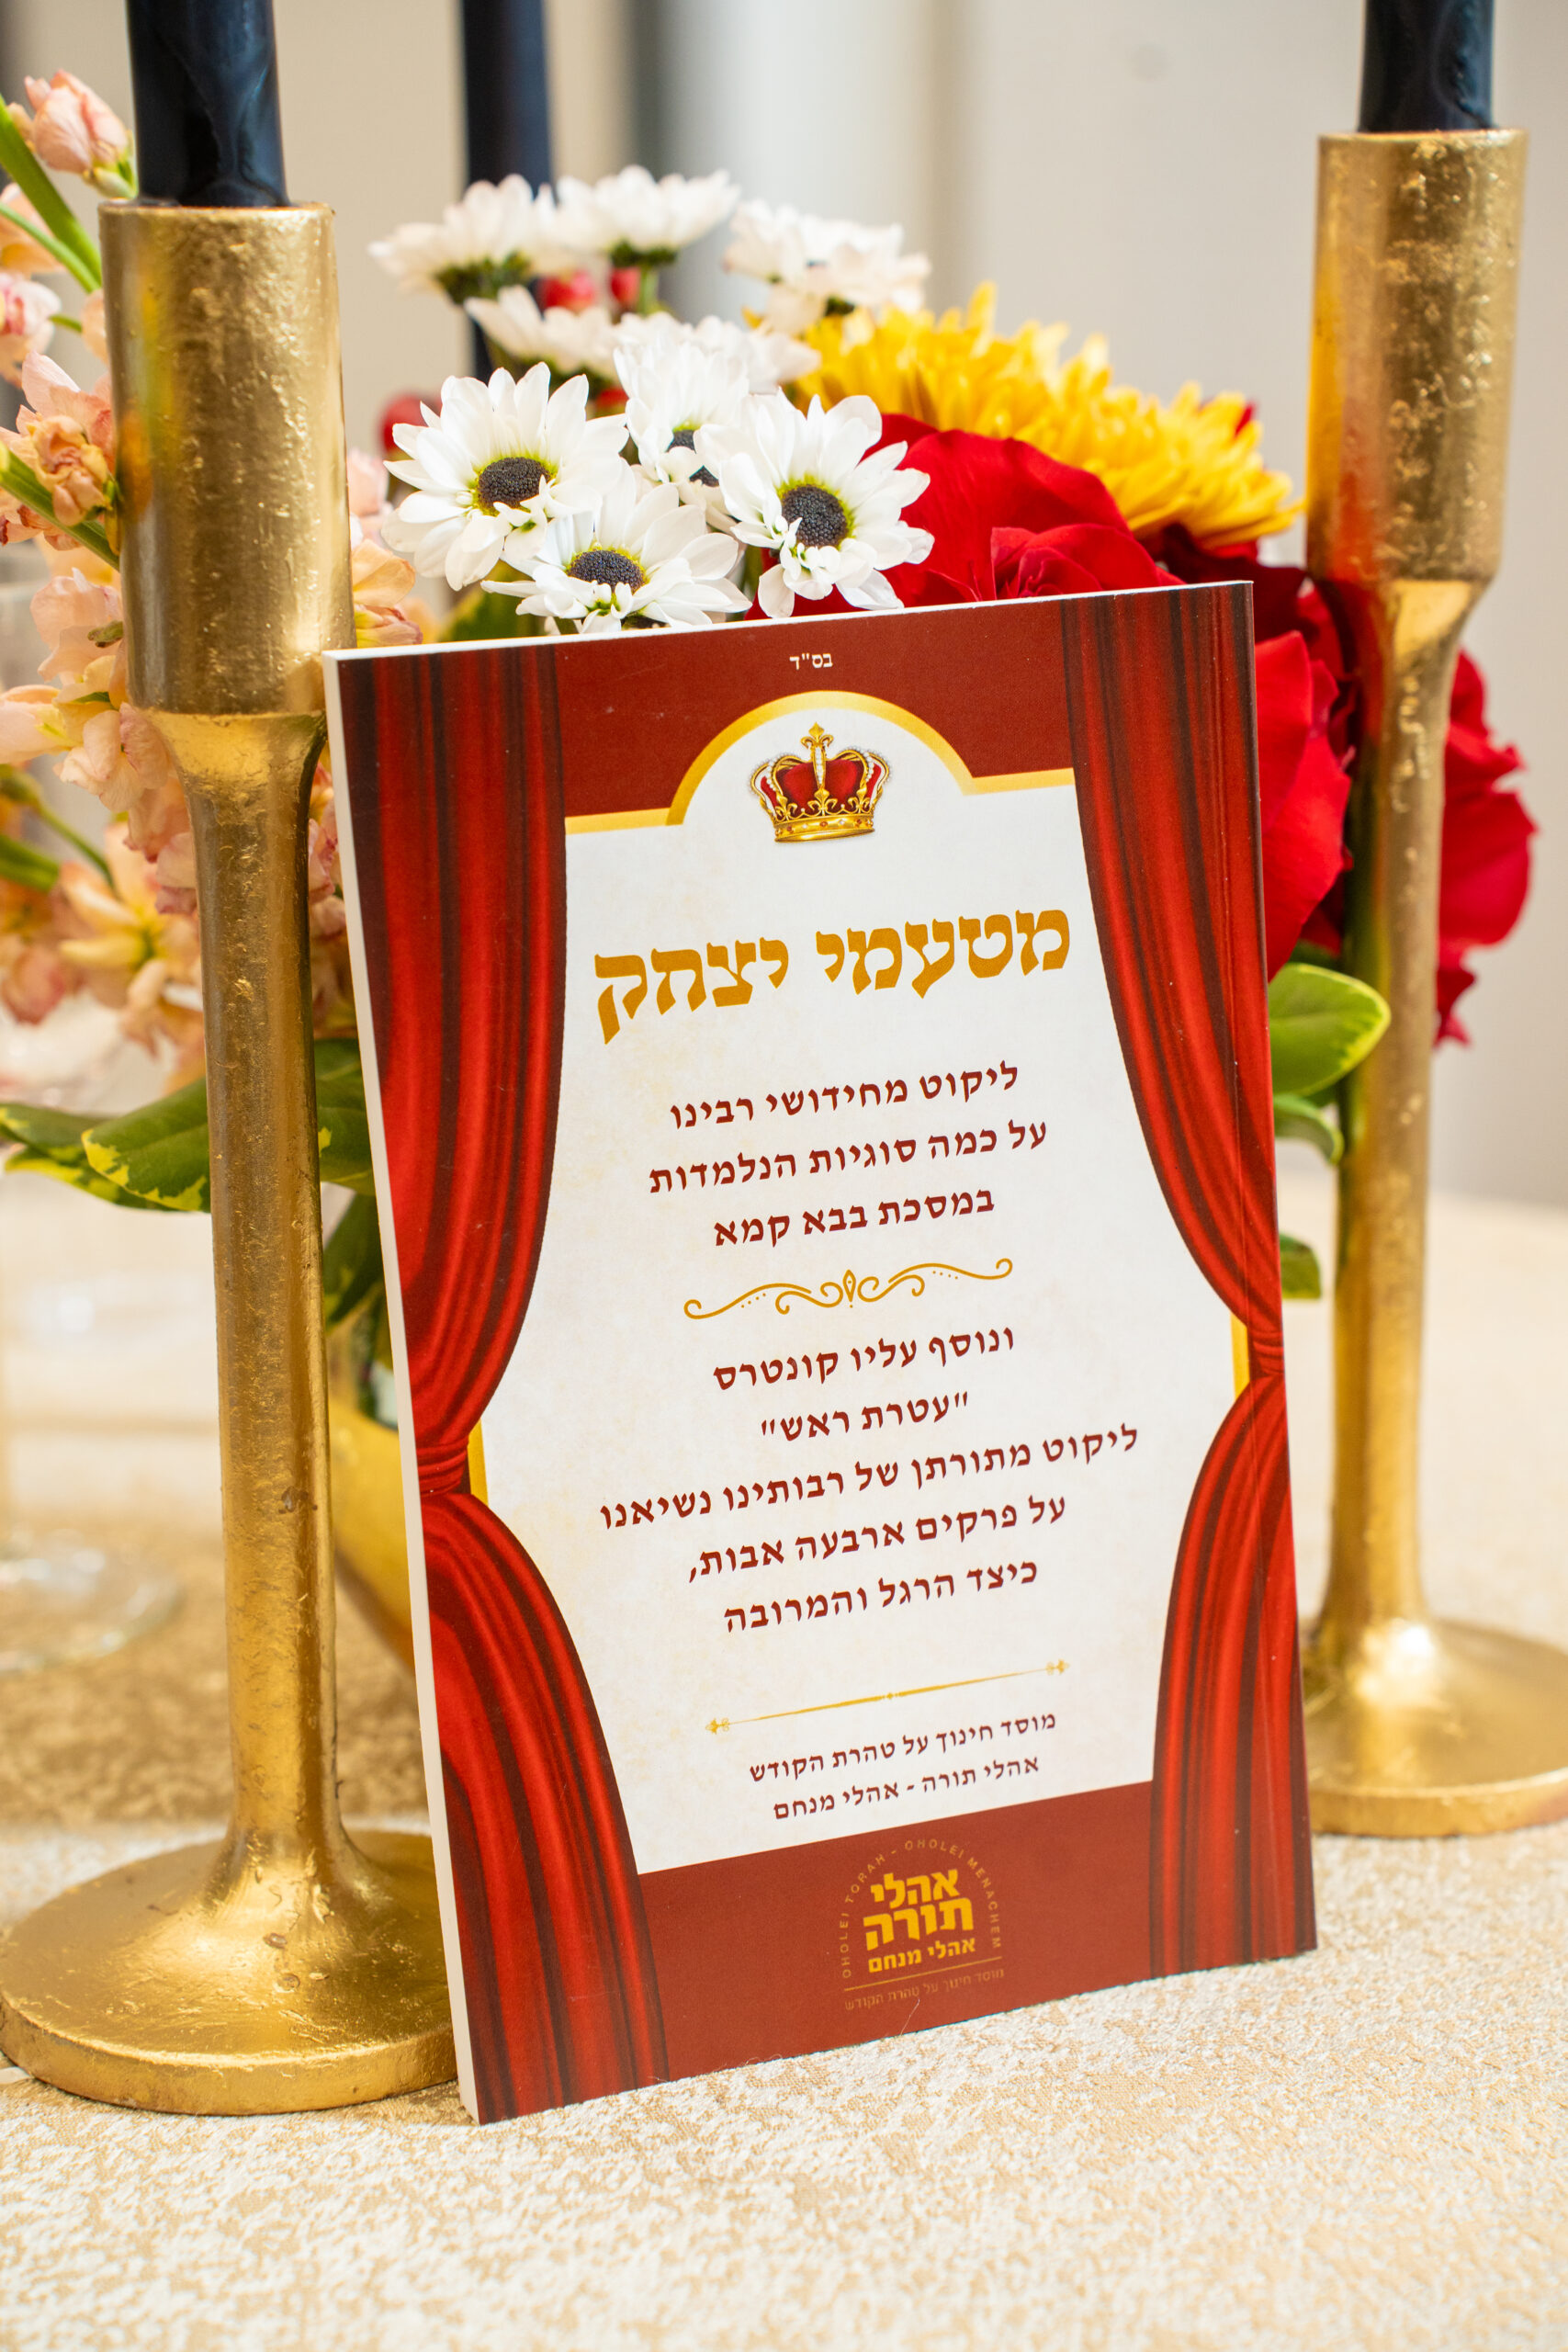 בס"ד
מטעמי יצחק
ליקוט מחידושי רבינו
על כמה סוגיות הנלמדות
במסכת בבא קמא
ונוסף עליו קונטרס
"עטרת ראש"
ליקוט מתורתן של רבותינו נשיאנו
על פרקים ארבעה אבות,
כיצד הרגל והמרובה
מוסד חינוך על טהרת הקודש
אהלי תורה - אהלי מנחם
OHOLEI TORAH - OHOLEI MENACHEM
אהלי
תורה
אהלי מנחם
מוסד חינוך על טהרת הקודש